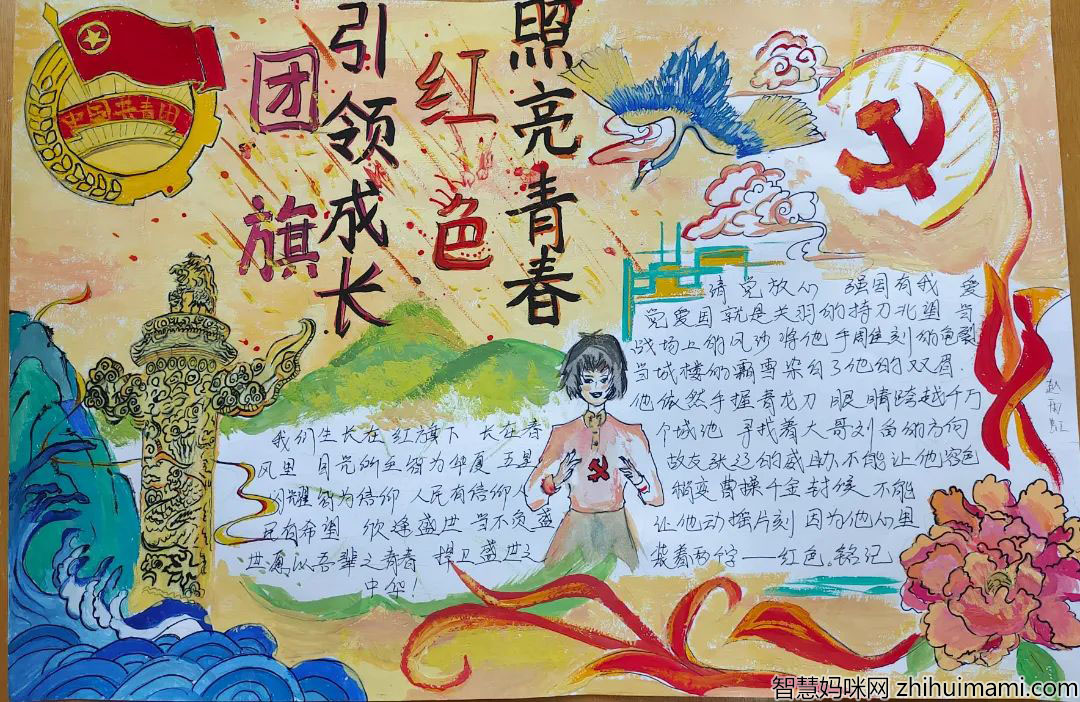 中国共青团
团旗
引领成长
红色
照亮青春
请党放心 强国有我 爱
党爱国就是关羽的持刀北望 当
战场上的风沙将他手周雕刻的皂裂
当城楼的霜雪染白了他的双眉
他依然手握青龙刀 眼睛跨越千万
个城池 寻找着大哥刘备的方向
故友张辽的威助不能让他容色
稍变 曹操千金封候 不能
让他动摇片刻 因为他心里
装着两个字——红色。铭记
我们生长在红旗下 长在春
风里 目光的至皆为华夏 五星
闪耀皆为信仰 人民有信仰人
民有希望 欣逢盛世当不负盛
世 愿以吾辈之青春 捍卫盛世之
中华！
智慧妈咪网 zhihuimami.com